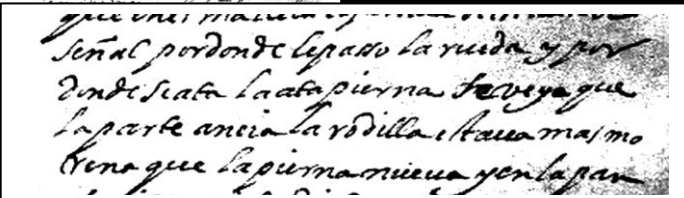 señal por donde le passo la rueda y por
donde se ata la ata pierna se veya que
la parte ancia la rodilla estava mas mo
rena que la pierna nueva y en la par